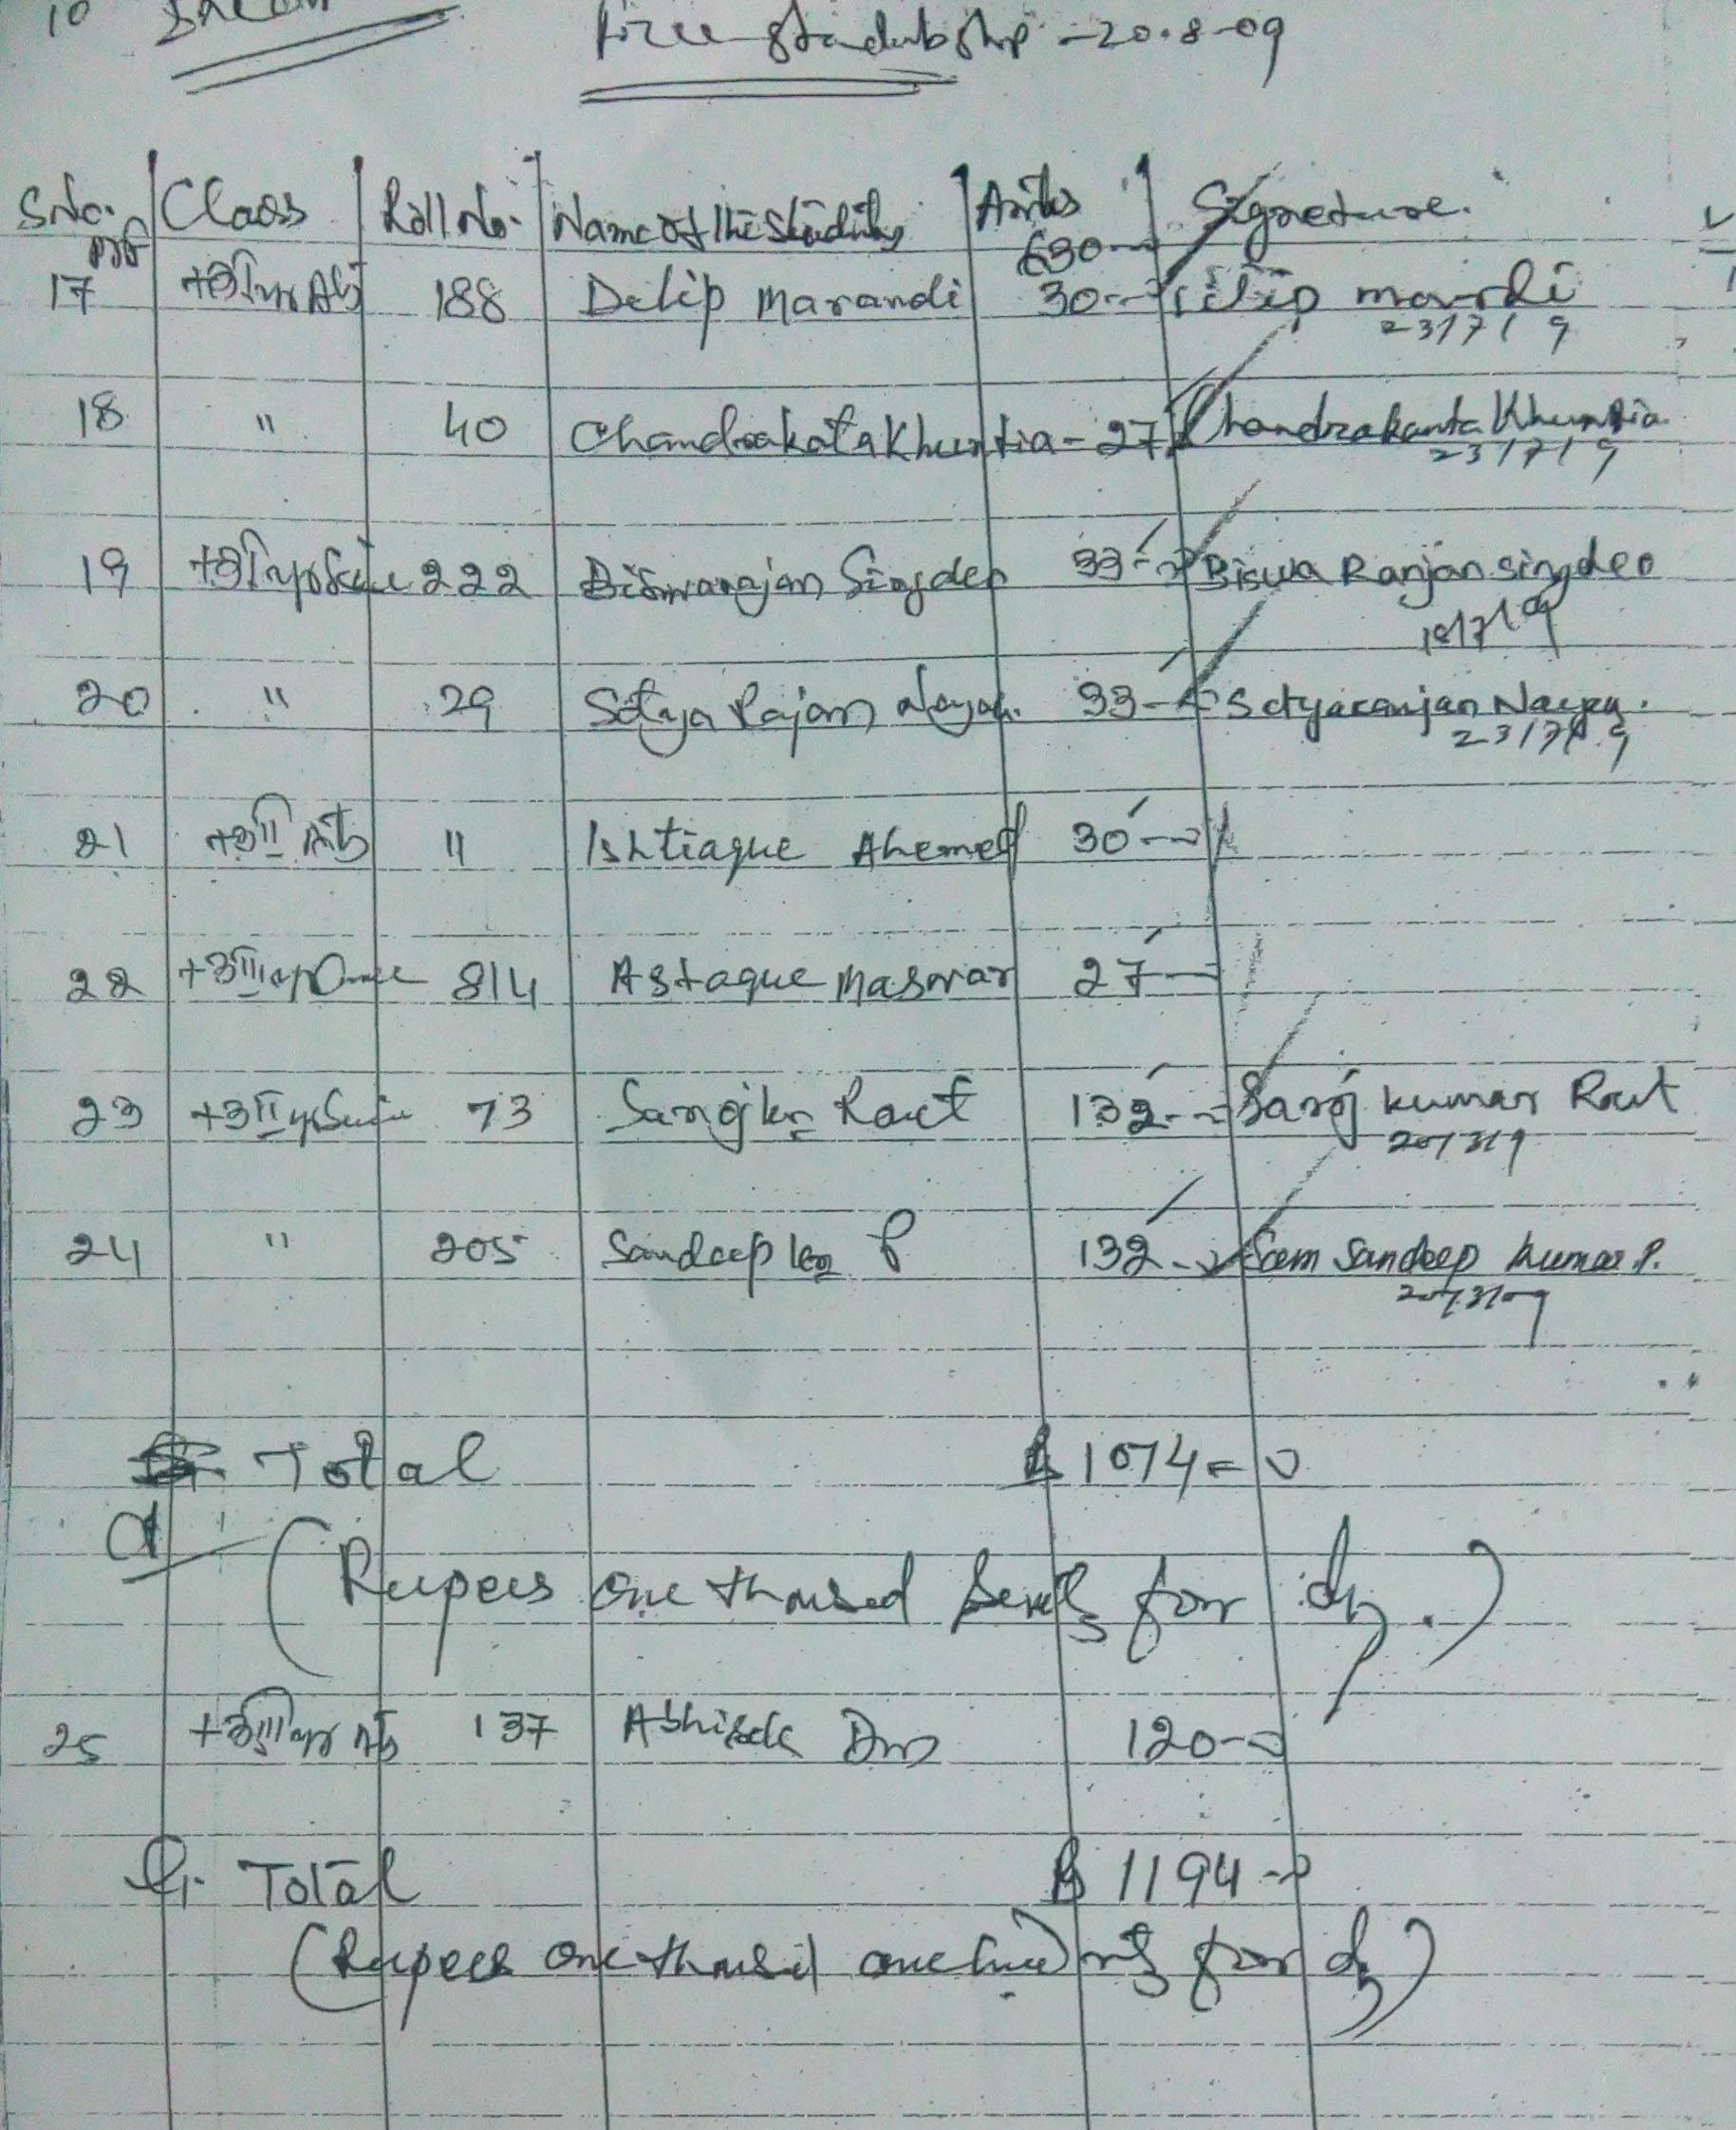 10
Free studentship - 20.8.09
S.No. Class Roll No. Name of the Students Amts Signature.
630-
17 188 Delip Marandi 30-0 Dilip mardi
23/7/9
18 " 40 Chandrakata Khuntia - 27 Chandrakanta Khuntia
23/7/9
19 222 Biswarajan Singdeo 33-0 Biswa Ranjan singdeo
18/7/09
20 " 29 Satya Rajan Nayak. 33-0 Satyaranjan Nayak.
23/7/9
21 +3 II Arts " Ishtiaque Ahemed 30-0
22 +3 III 814 Astaque Maswar 27-0
23 +3 II 73 Saroj kr Rout 132-0 Saroj kumar Rout
20/3/9
24 " 205 Sandeep kr P 132-0 Sandeep Kumar P.
20/3/09
Total 1074=0
(Rupees one thousand Seventy four only.)
25 +3 III 137 Abhisek Das 120-0
G. Total 1194-0
(Rupees one thousand one hundred four only)